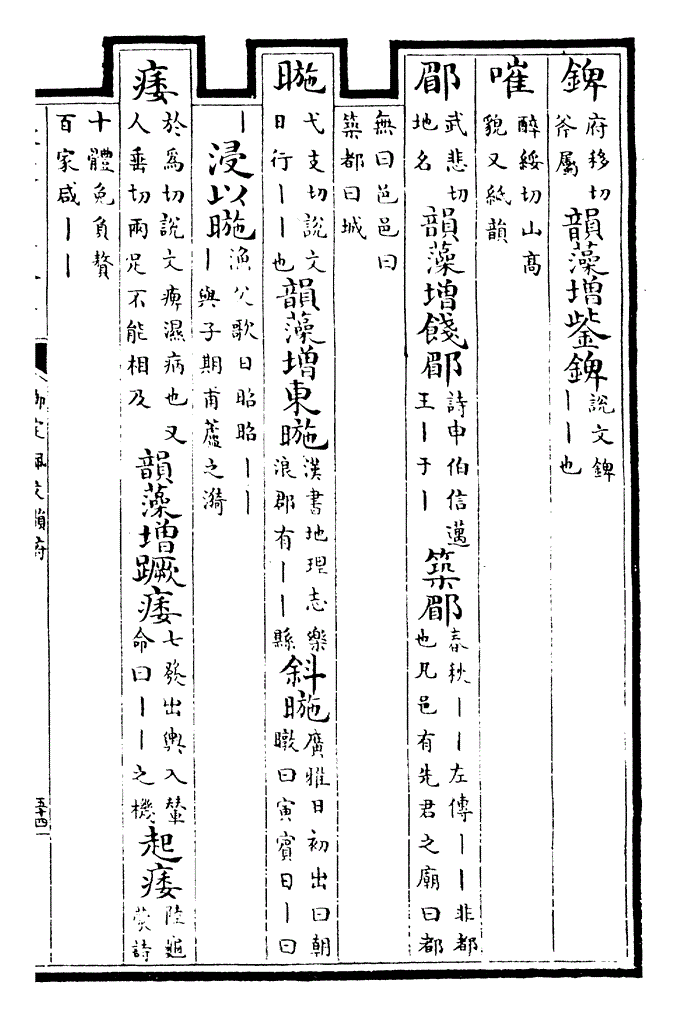 錍府移切斧屬韻藻增鈭錍說文錍丨丨也
嗺醉綏切山高貌又紙韻
郿武悲切地名韻藻增餞郿詩申伯信邁王丨于丨築郿春秋丨丨左傳丨丨非都也凡邑有先君之廟曰都
無曰邑邑曰築都曰城
暆弋支切說文日行丨丨也韻藻增東暆漢書地理志樂浪郡有丨丨縣斜暆廣雅日初出曰朝暾曰寅賓日丨曰
丨浸以暆漁父歌日昭昭丨丨丨與子期甫蘆之漪
痿於爲切說文痺濕病也又人垂切兩足不能相及韻藻增蹶痿七發出輿入輦命曰丨丨之機起痿陸龜蒙詩
十體免負贅百家咸丨丨
御定佩文韻府
五十四